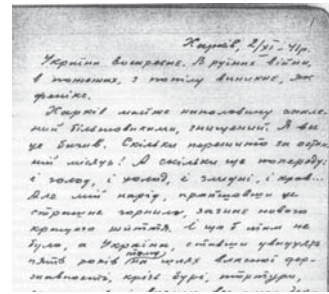 Харків, 2/XI-41р.
Україна воскресне. В руїнах війни,
в пожежах, з попілу виникне, як
фенікс.
Харків майже наполовину спале-
ний більшовиками, знищений. Я все
це бачив. Скільки пережито за остан-
ній місяць! А скільки ще попереду:
і голод, і холод, і злидні, і кров...
Але мій нарід, пройшовши це
страшне горнило, зачне нового
кращого життя. І що б там не
було, а Україна, ставши
років тому на шлях власної дер-
жавности, крізь бурі,